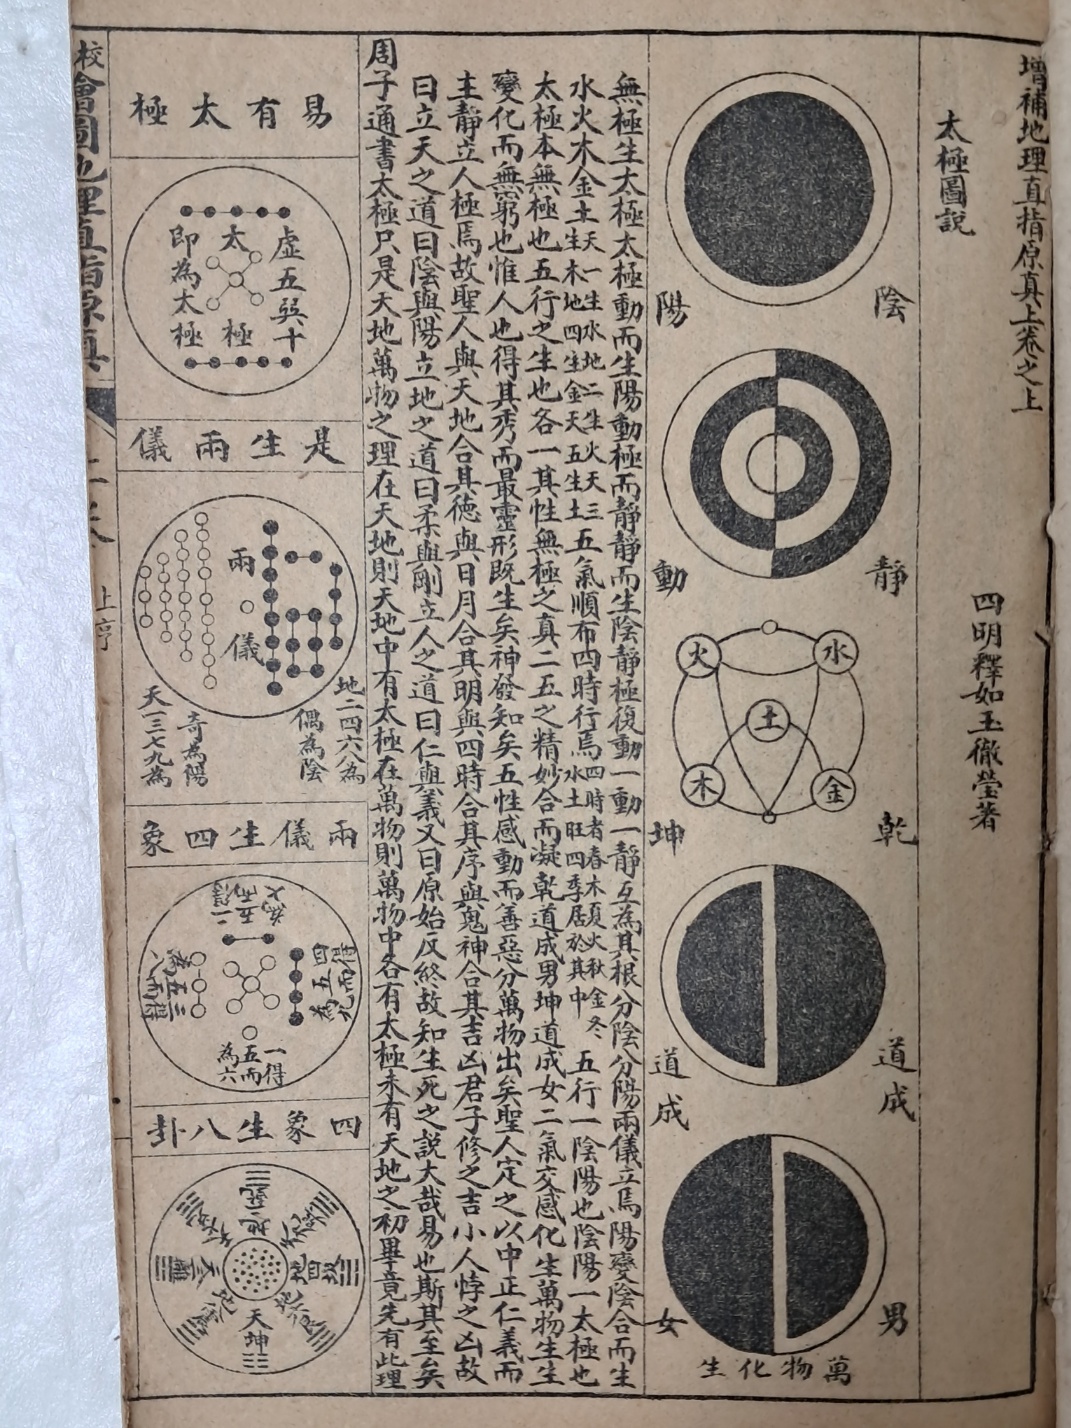 增補地理直指原真上卷之上
四明釋如玉徹瑩著
太極圖說
陰
陽
靜
動
水
火
土
金
木
乾
坤
道成
道成
男
女
萬物化生
無極生太極太極動而生陽動極而靜靜而生陰靜極復動一動一靜互為其根分陰分陽兩儀立焉陽變陰合而生
水火木金土天一生水地二生火天三生木地四生金天五生土五氣順布四時行焉四時者春木夏火秋金冬水土旺四季居於其中五行一陰陽也陰陽一太極也
太極本無極也五行之生也各一其性無極之真二五之精妙合而凝乾道成男坤道成女二氣交感化生萬物生生
變化而無窮也惟人也得其秀而最靈形既生矣神發知矣五性感動而善惡分萬物出矣聖人定之以中正仁義而
主靜立人極焉故聖人與天地合其德與日月合其明與四時合其序與鬼神合其吉凶君子修之吉小人悖之凶故
曰立天之道曰陰與陽立地之道曰柔與剛立人之道曰仁與義又曰原始反終故知生死之說大哉易也斯其至矣
周子通書太極只是天地萬物之理在天地則天地中有太極在萬物則萬物中各有太極未有天地之初畢竟先有此理
易有太極
虛五與十
太極
即為太極
是生兩儀
兩儀
地二四六八為
偶為陰
奇為陽
天一三七九為
兩儀生四象
一得
五而
為六
四象生八卦
天
坤